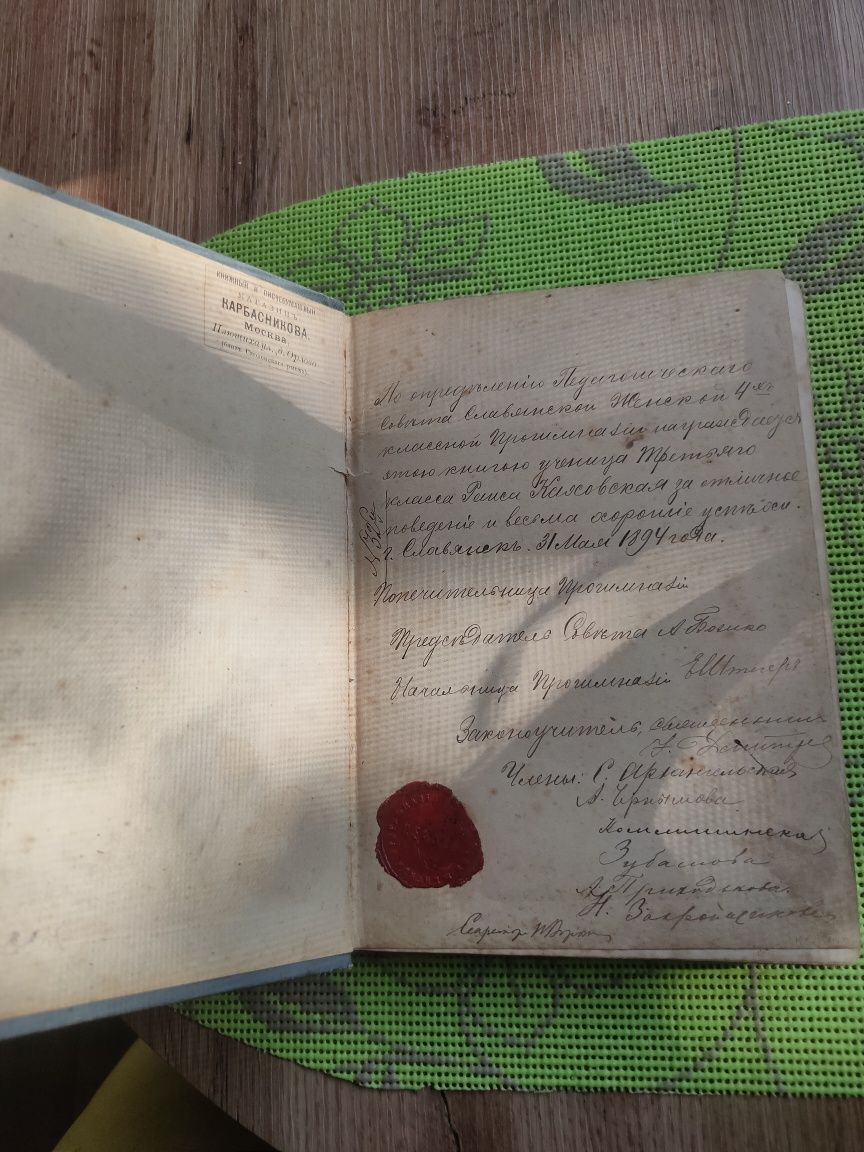 КНИЖНЫЙ И ПИСЧЕБУМАЖНЫЙ
МАГАЗИНЪ
КАРБАСНИКОВА.
Москва.
Плющиха ул., д. Орлова
(близъ Смоленскаго рынка).
По опредѣленію Педагогическаго
Совѣта Славянской Женской 4хъ
классной Прогимназіи награждается
этою книгою ученица Третьяго
класса Раиса Каховская за отличное
поведеніе и весьма хорошіе успѣхи.
г. Славянскъ. 31 Мая 1894 года.
Попечительница Прогимназіи
Предсѣдатель Совѣта А
Начальница Прогимназіи
Законоучитель, священникъ
Члены: С. Архангельская
А.
Зубашова
А. Приходькова.
Н.
Секретарь